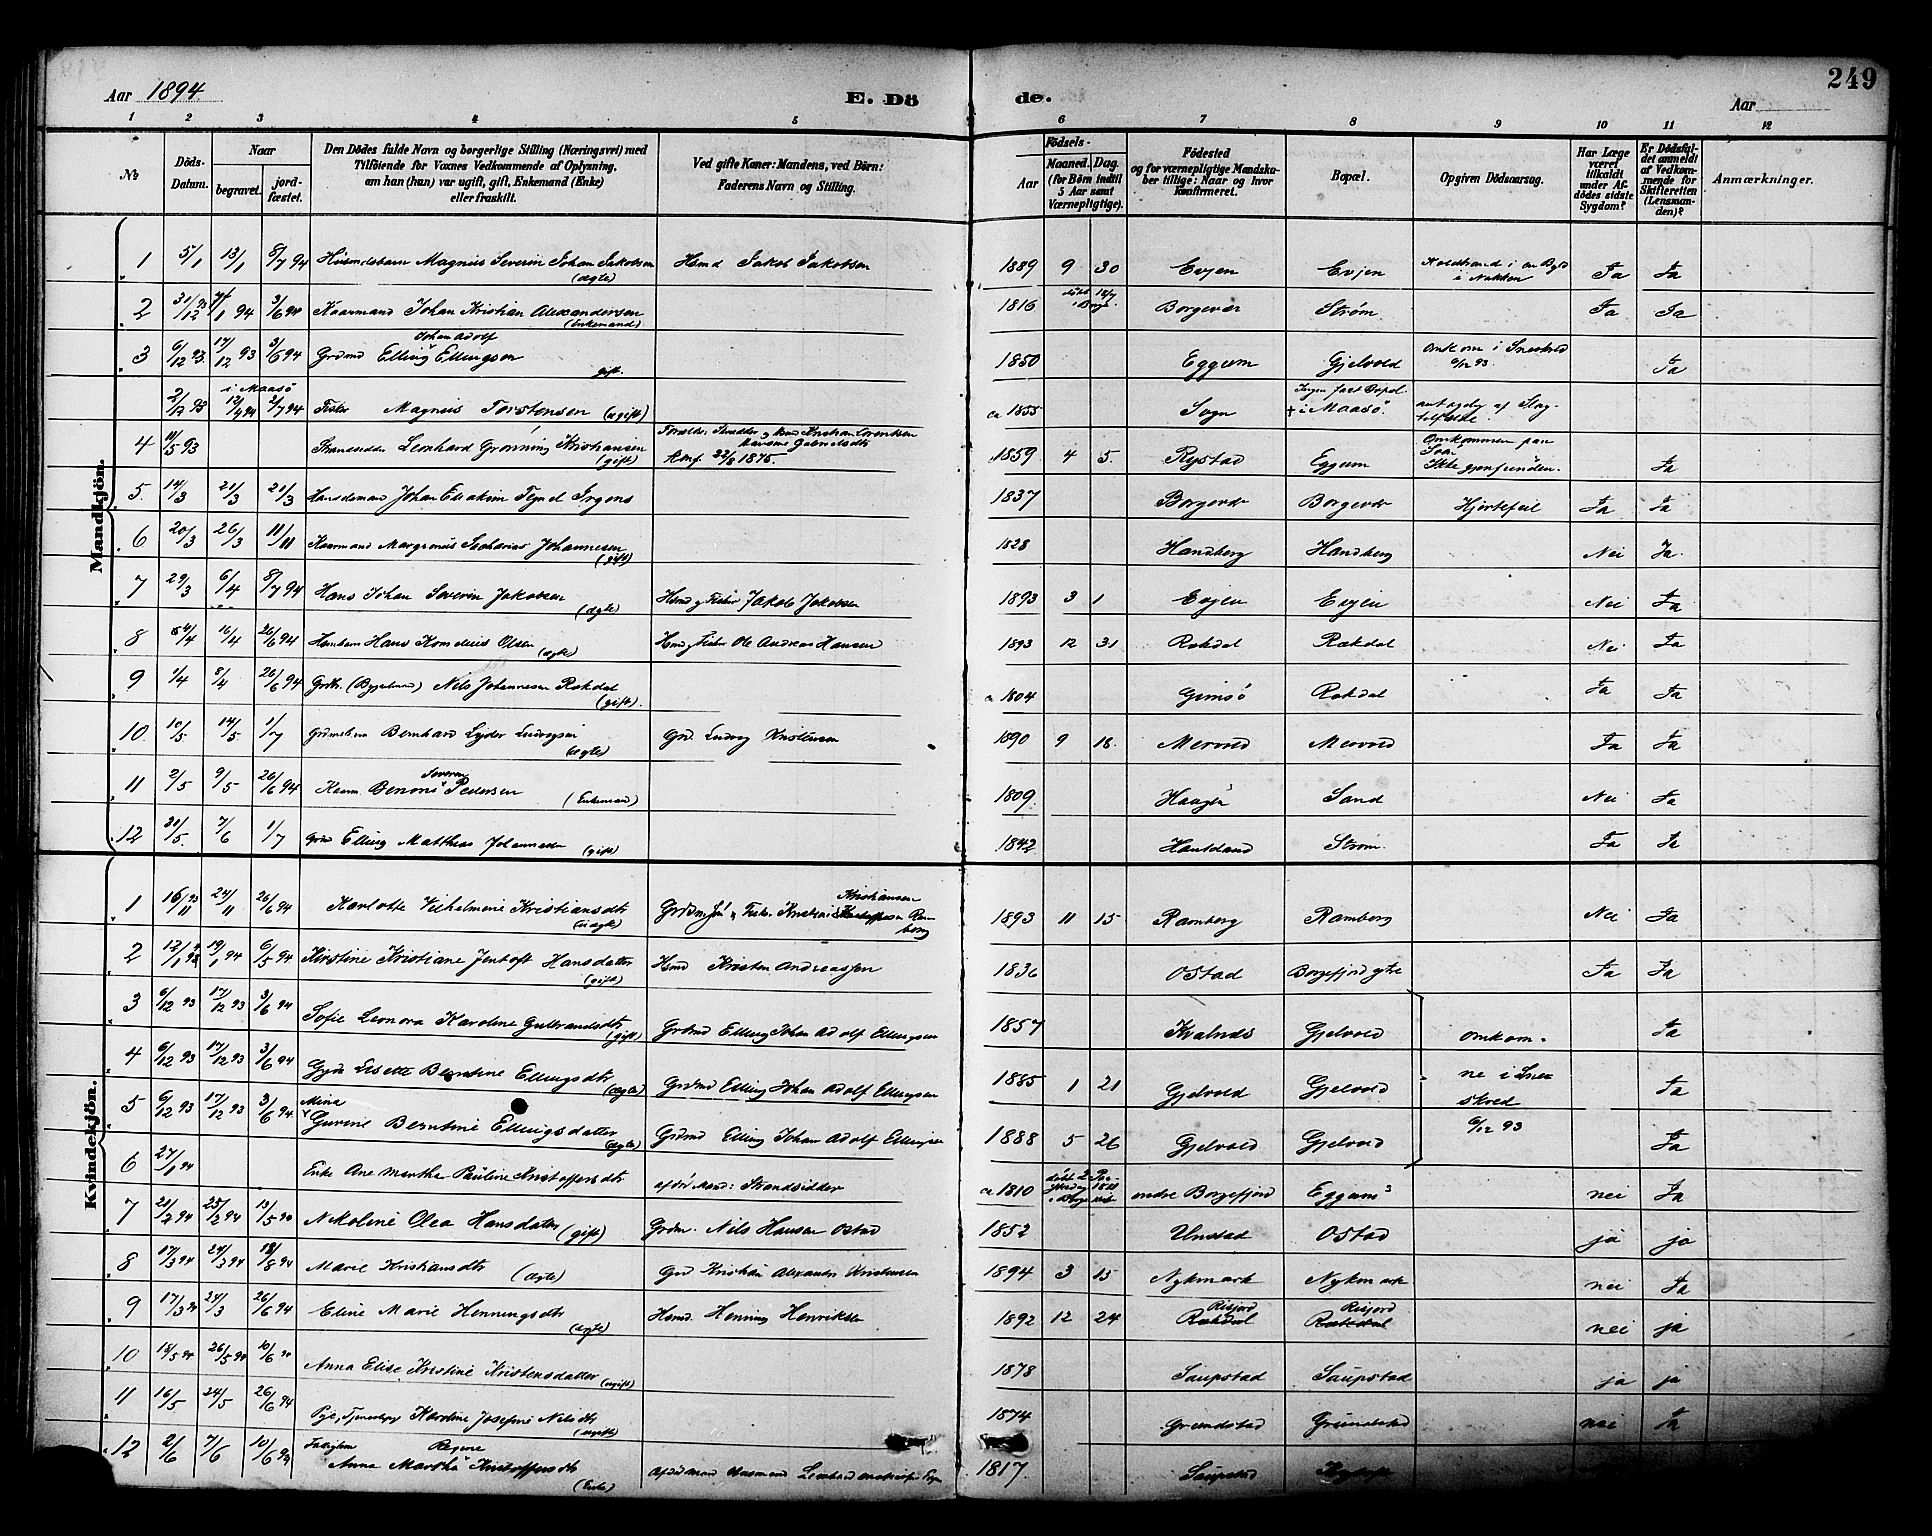 249
Aar 1894. E. Dö de. Aar
1 2 3 4 5 6 7 8 9 10 11 12
No
Döds-Datum.
Naar
begravet.
jord-fæstet.
Den Dödes fulde Navn og borgerlige Stilling (Næringsvei) med
Tilföiende for Voxnes Vedkommende af Oplysning,
om han (hun) var ugift, gift, Enkemand (Enke)
eller fraskilt.
Ved gifte Koner: Mandens, ved Börn:
Faderens Navn og Stilling.
Födsels-
Aar
Maaned. Dag.
(for Börn indtil
5 Aar samt
Værnepligtige).
Födested
og for værnepligtige Mandska-
ber tillige: Naar og hvor
konfirmeret.
Bopæl.
Opgiven Dödsaarsag.
Har Læge
været
tilkaldt
under Af-
dödes sidste
Sygdom?
Er Dödsfal-
det anmeldt
af Vedkom-
mende for
Skifteretten
(Lensman-
den)?
Anmærkninger.
Mandkjön.
1 5/1 13/1 8/7 94 Magnus Severin Johan Jakobsen (ægte) Hsmd Jakob Jakobsen 1889 9 30 Evjen Evjen i Nakken Ja Ja
2 31/12 93 1 94 3/6 94 Kaarmand Johan Kristian Alexandersen (Enkemand) 1816 Borgevær Strøm Ja Ja
3 6/12 93 17/12 93 3/6 94 Grdmd Johan Adolf Elling Ellingsen gift. 1850 Eggum Gjelvold Omkom i Sneskred 6/12 93 Ja
2/12 93 i Maasö 12/4 94 2/7 94 Fisker Magnus Torstensen (ugift) ca 1855 Sogn Ingen fast Bopel + i Maasö.
4 11/5 93 Strandsidder Leonhard Grønning Kristiansen (gift) Konf. 22/8 1875. 1859 4 5. Rystad Eggum Omkommen paa Ikke gjenfunden. Ja
5. 14/3 21/3 21/3 Johan Eliakim Irgens 1837 Borgevær Borgevær Hjertefeil Ja Ja
6 20/3 26/3 11/11 Kaarmand Zacharias Johannesen (gift) 1828 Handberg Handberg Nei Ja.
7 29/3 6/4 8/7 94 Hans Johan Severin Jakobsen (ægte) Hsmd og Fisker Jakob Jakobsen 1893 3 1 Evjen Evjen Nei Ja
8 4/4 16/4 26/6 94 Hans Kornelius Olsen (ægte) Hsmd og Fisker Ole Andreas Hansen 1893 12 31 Rækdal Rækdal Nei Ja
9 1/4 8/4 26/6 94 Nils Johannesen Rækdal (gift). ca 1804 Gimsö Rækdal Ja Ja
10. 10/5 14/5 1/7 Bernhard Lyder Ludvigsen (ægte) Grd. Ludvig Kristensen 1890 9 18. Mervold Mervold Ja Ja
11 2/5 9/5 26/6 94 Kaarm. Benoni Severin Pedersen (Enkemand) 1809. Haugen Sand Nei Ja
12 31/5. 7/6 1/7 Grdmd Elling Matthias Johannesen (gift) 1842 Hautland Strøm. Ja Ja
Kvindekjön.
1 16/11 93 24/11 26/6 94 Karlotte Vilhelmine Kristiansdtr (uægte) Kristiansen Ramberg 1893 11 15 Ramberg Ramberg Nei Ja
2 12/1 94 19/1 94 6/5 94. Kirstine Kristiane Jentoft Hansdatter (gift) Hsmd Kristen Andreassen 1836 Ostad Borgefjord ytre Ja Ja
3 6/12 93 17/12 93 3/6 94 Sofie Leonora Karoline Gulbrandsdtr (gift) Grdmd Elling Johan Adolf Ellingsen 1857 Kvalnæs Gjelvold omkom- Ja
4 6/12 93 17/12 93 3/6 94 Gyda Lisette Berntine Ellingsdtr (ægte) Grdmd Elling Johan Adolf Ellingsen 1885 1 21 Gjelvold Gjelvold ne i Sne skred Ja
5 6/12 93 17/12 93 3/6 94 Mina Gurine Berntine Ellingsdatter (ægte) Grdmd Elling Johan Adolf Ellingsen 1888 5 26 Gjelvold Gjelvold 6/12 93 Ja
6 27/1 94 Enke Ane Martha Pauline Kristoffersdtr afdöd Mand: Strandsidder ca 1810 indre Borgefjord Eggum nei Ja
7 21/2 94 25/2 94 13/5 94 Nikoline Olea Hansdatter (gift) Grdm. Nils Hansen Ostad 1852 Unstad Ostad ja ja
8 17/3 94 24/3 94 18/8 94 Marie Kristiansdtr (ægte) Grd Kristian Alexander Kristensen 1894 3 15 Nykmark Nykmark nei Ja
9 17/3 94 24/3 26/6 94 Eline Marie Henningsdtr (ægte) Hsmd. Henning Henriksen 1892 12 24 Risfjord Rækdal Risfjord Rækdal nei ja
10 18/5 94 26/5 94 10/6 94 Anna Elise Kristine Kristensdatter (ugift) 1878 Saupstad Saupstad ja ja
11 16/5 24/5 26/6 94 Karoline Josefine Nilsdtr (ugift) 1874 Grundstad Grundstad nei Ja
12 2/6 7/6 10/6 94 Anna Martha Regine Kristoffersdtr (Enke) Afdöd Mand Husmand 1817. Saupstad